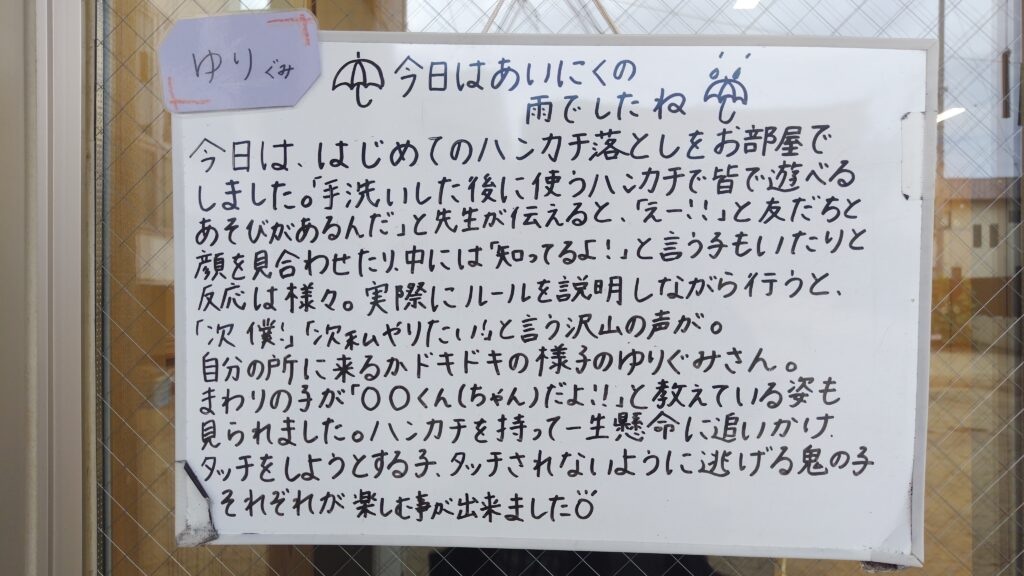 ゆりぐみ
今日はあいにくの
雨でしたね
今日は、はじめてのハンカチ落としをお部屋で
しました。「手洗いした後に使うハンカチで皆で遊べる
あそびがあるんだ」と先生が伝えると、「えー!!」と友だちと
顔を見合わせたり、中には「知ってるよ!」と言う子もいたりと
反応は様々。実際にルールを説明しながら行うと、
「次僕!」「次私やりたい!」と言う沢山の声が。
自分の所に来るかドキドキの様子のゆりぐみさん。
まわりの子が「〇〇くん(ちゃん)だよ!!」と教えている姿も
見られました。ハンカチを持って一生懸命に追いかけ、
タッチをしようとする子、タッチされないように逃げる鬼の子
それぞれが楽しむ事が出来ました